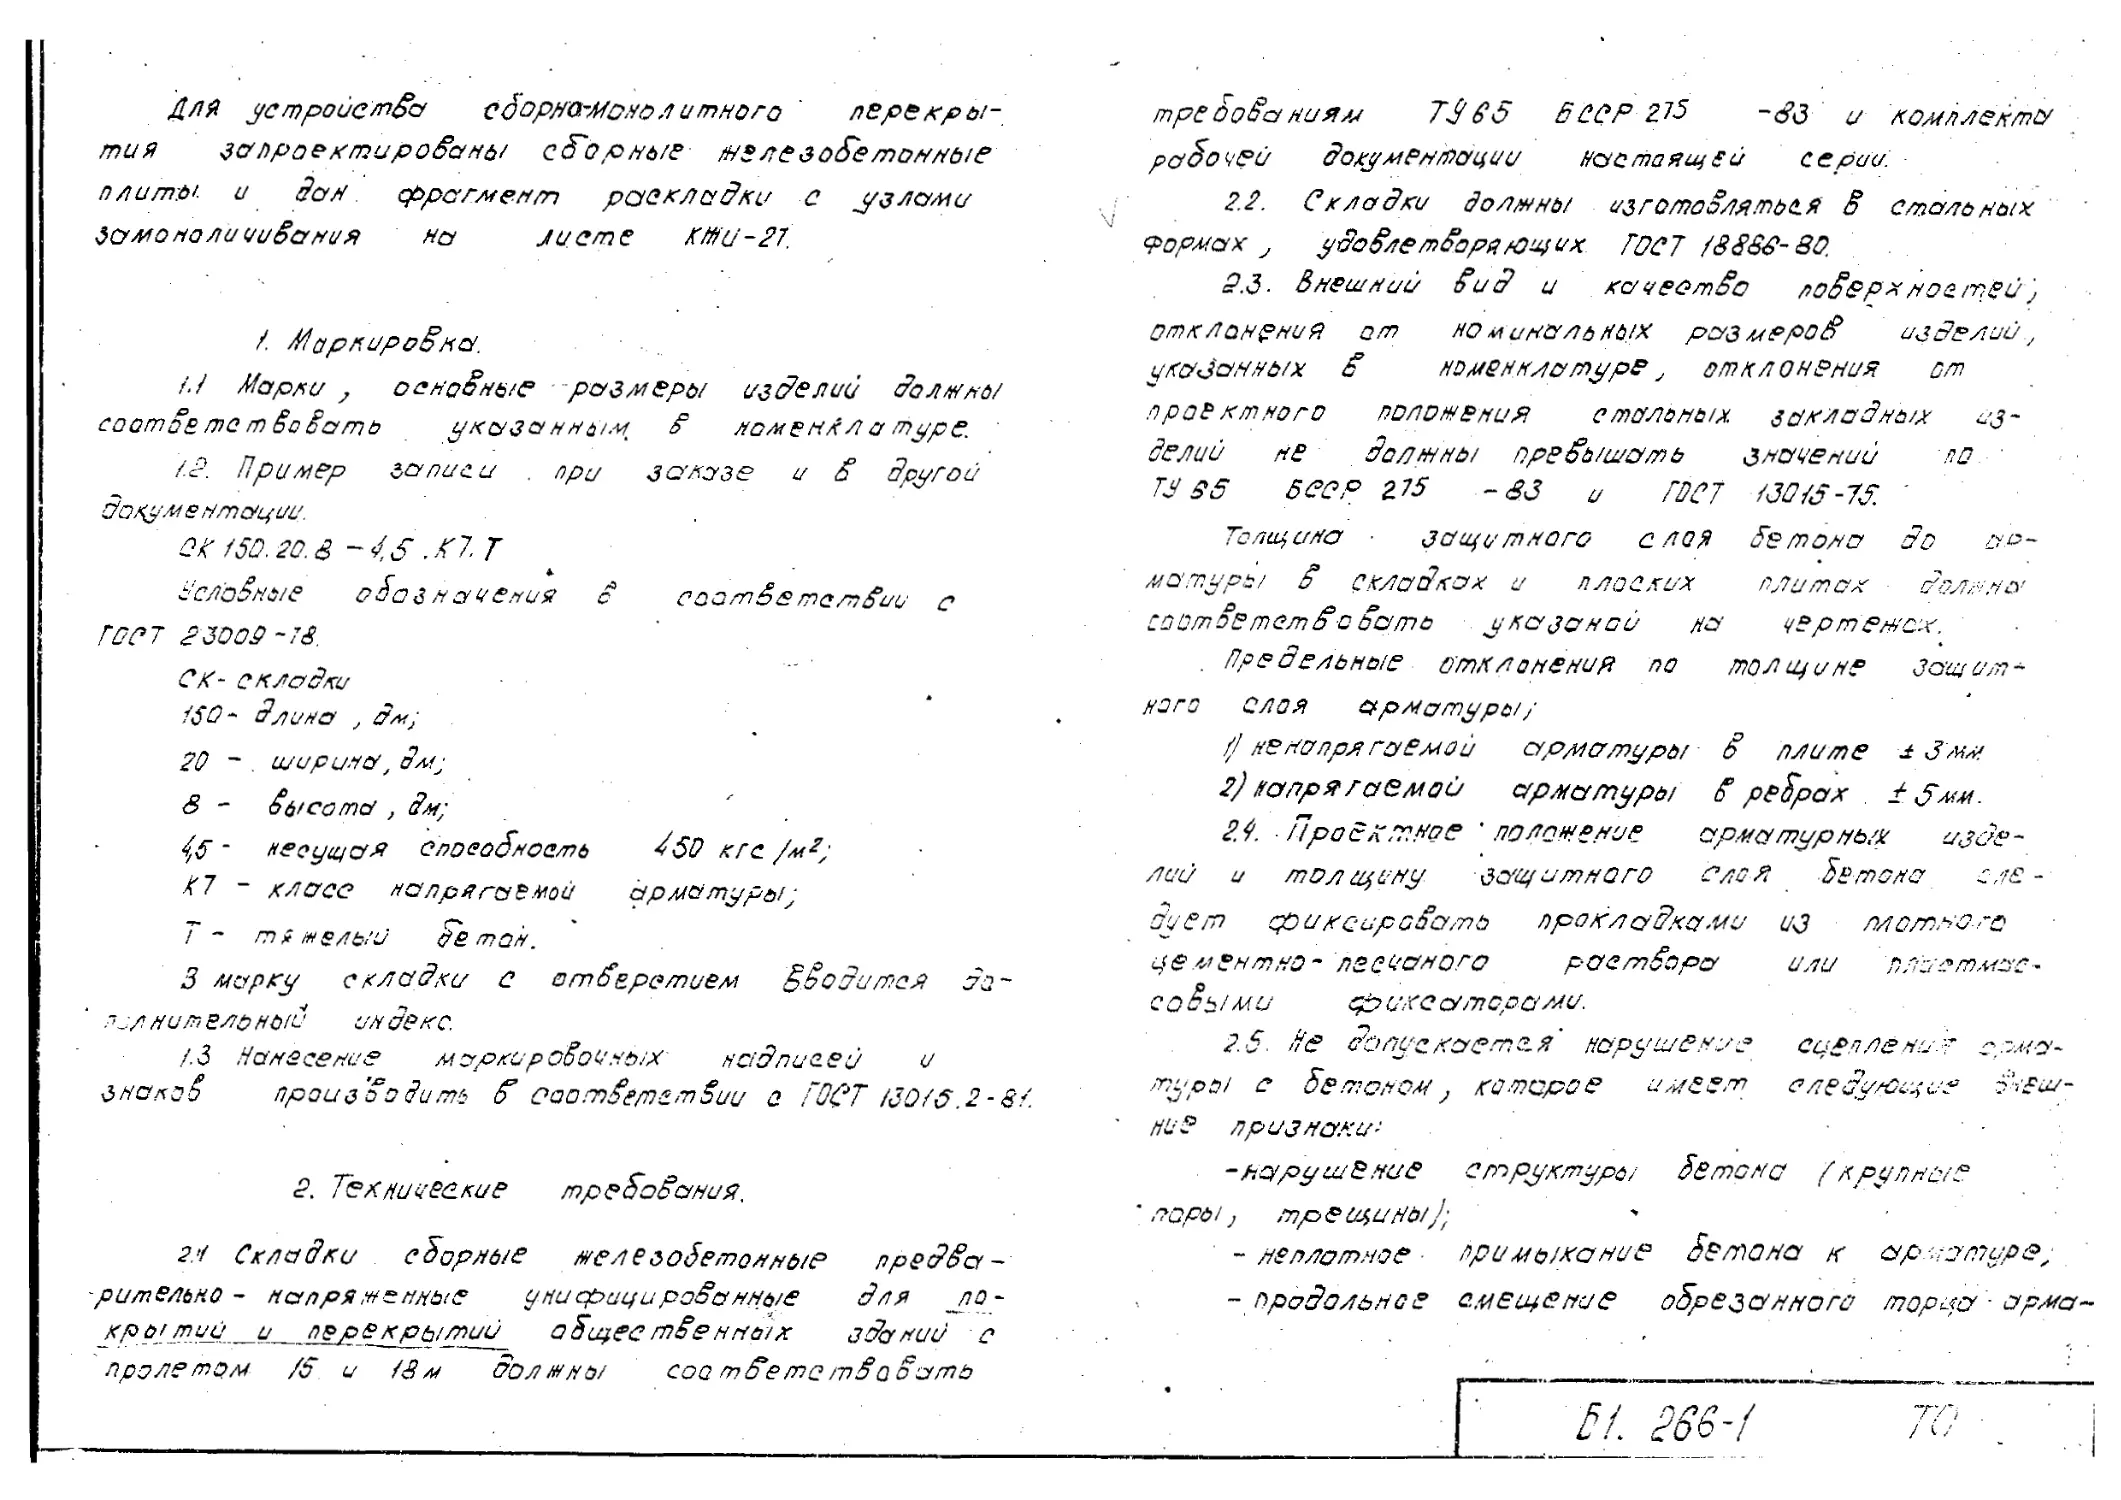 Для устройства сборно-монолитного перекры-
тия запроектированы сборные железобетонные
плиты и дан фрагмент раскладки с узлами
замоноличивания на листе КЖИ-27.
1. Маркировка.
1.1 Марки, основные размеры изделий должны
соответствовать указанным в номенклатуре.
1.2. Пример записи при заказе и в другой
документации.
СК 150.20.8 - 4,5.К7.Т
Условные обозначения в соответствии с
ГОСТ 23009-78.
СК- складки
150- длина, дм;
20 - ширина, дм;
8 - высота, дм;
4,5 - несущая способность 450 кгс/м²;
К7 - класс напрягаемой арматуры;
Т - тяжелый бетон.
В марку складки с отверстием вводится до-
полнительный индекс.
1.3 Нанесение маркировочных надписей и
знаков производить в соответствии с ГОСТ 13015.2-81.
2. Технические требования.
2.1 Складки сборные железобетонные предва-
рительно - напряженные унифицированные для по-
крытий и перекрытий общественных зданий с
пролетом 15 и 18 м должны соответствовать
требованиям ТУ 65 БССР 275 -83 и комплекта
рабочей документации настоящей серии.
2.2. Складки должны изготовляться в стальных
формах, удовлетворяющих ГОСТ 18886-80.
2.3. Внешний вид и качество поверхностей;
отклонения от номинальных размеров изделий,
указанных в номенклатуре, отклонения от
проектного положения стальных закладных из-
делий не должны превышать значений по
ТУ 65 БССР 275 -83 и ГОСТ 13015-75.
Толщина защитного слоя бетона до ар-
матуры в складках и плоских плитах должна
соответствовать указаной на чертежах.
Предельные отклонения по толщине защит-
ного слоя арматуры;
1) ненапрягаемой арматуры в плите ± 3 мм
2) напрягаемой арматуры в ребрах ± 5 мм.
2.4. Проектное положение арматурных изде-
лий и толщину защитного слоя бетона сле-
дует фиксировать прокладками из плотного
цементно-песчаного раствора или пластмас-
совыми фиксаторами.
2.5. Не допускается нарушение сцепления арма-
туры с бетоном, которое имеет следующие внеш-
ние признаки:
-нарушение структуры бетона (крупные
поры, трещины);
- неплотное примыкание бетона к арматуре;
- продольное смещение обрезанного торца арма-
Б1. 266-1 ТО